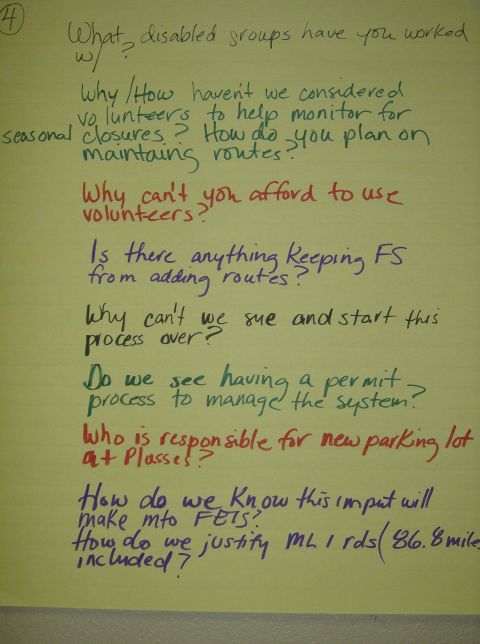 4
What disabled groups have you worked
w/?
Why/How haven't we considered
volunteers to help monitor for
seasonal closures? How do you plan on
maintaing routes?
Why can't you afford to use
volunteers?
Is there anything Keeping FS
from adding routes?
Why can't we sue and start this
process over?
Do we see having a permit
process to manage the system?
Who is responsible for new parking lot
at Plasses?
How do we Know this input will
make into FEIS?
How do we justify ML 1 rds (86.8 mile
included?